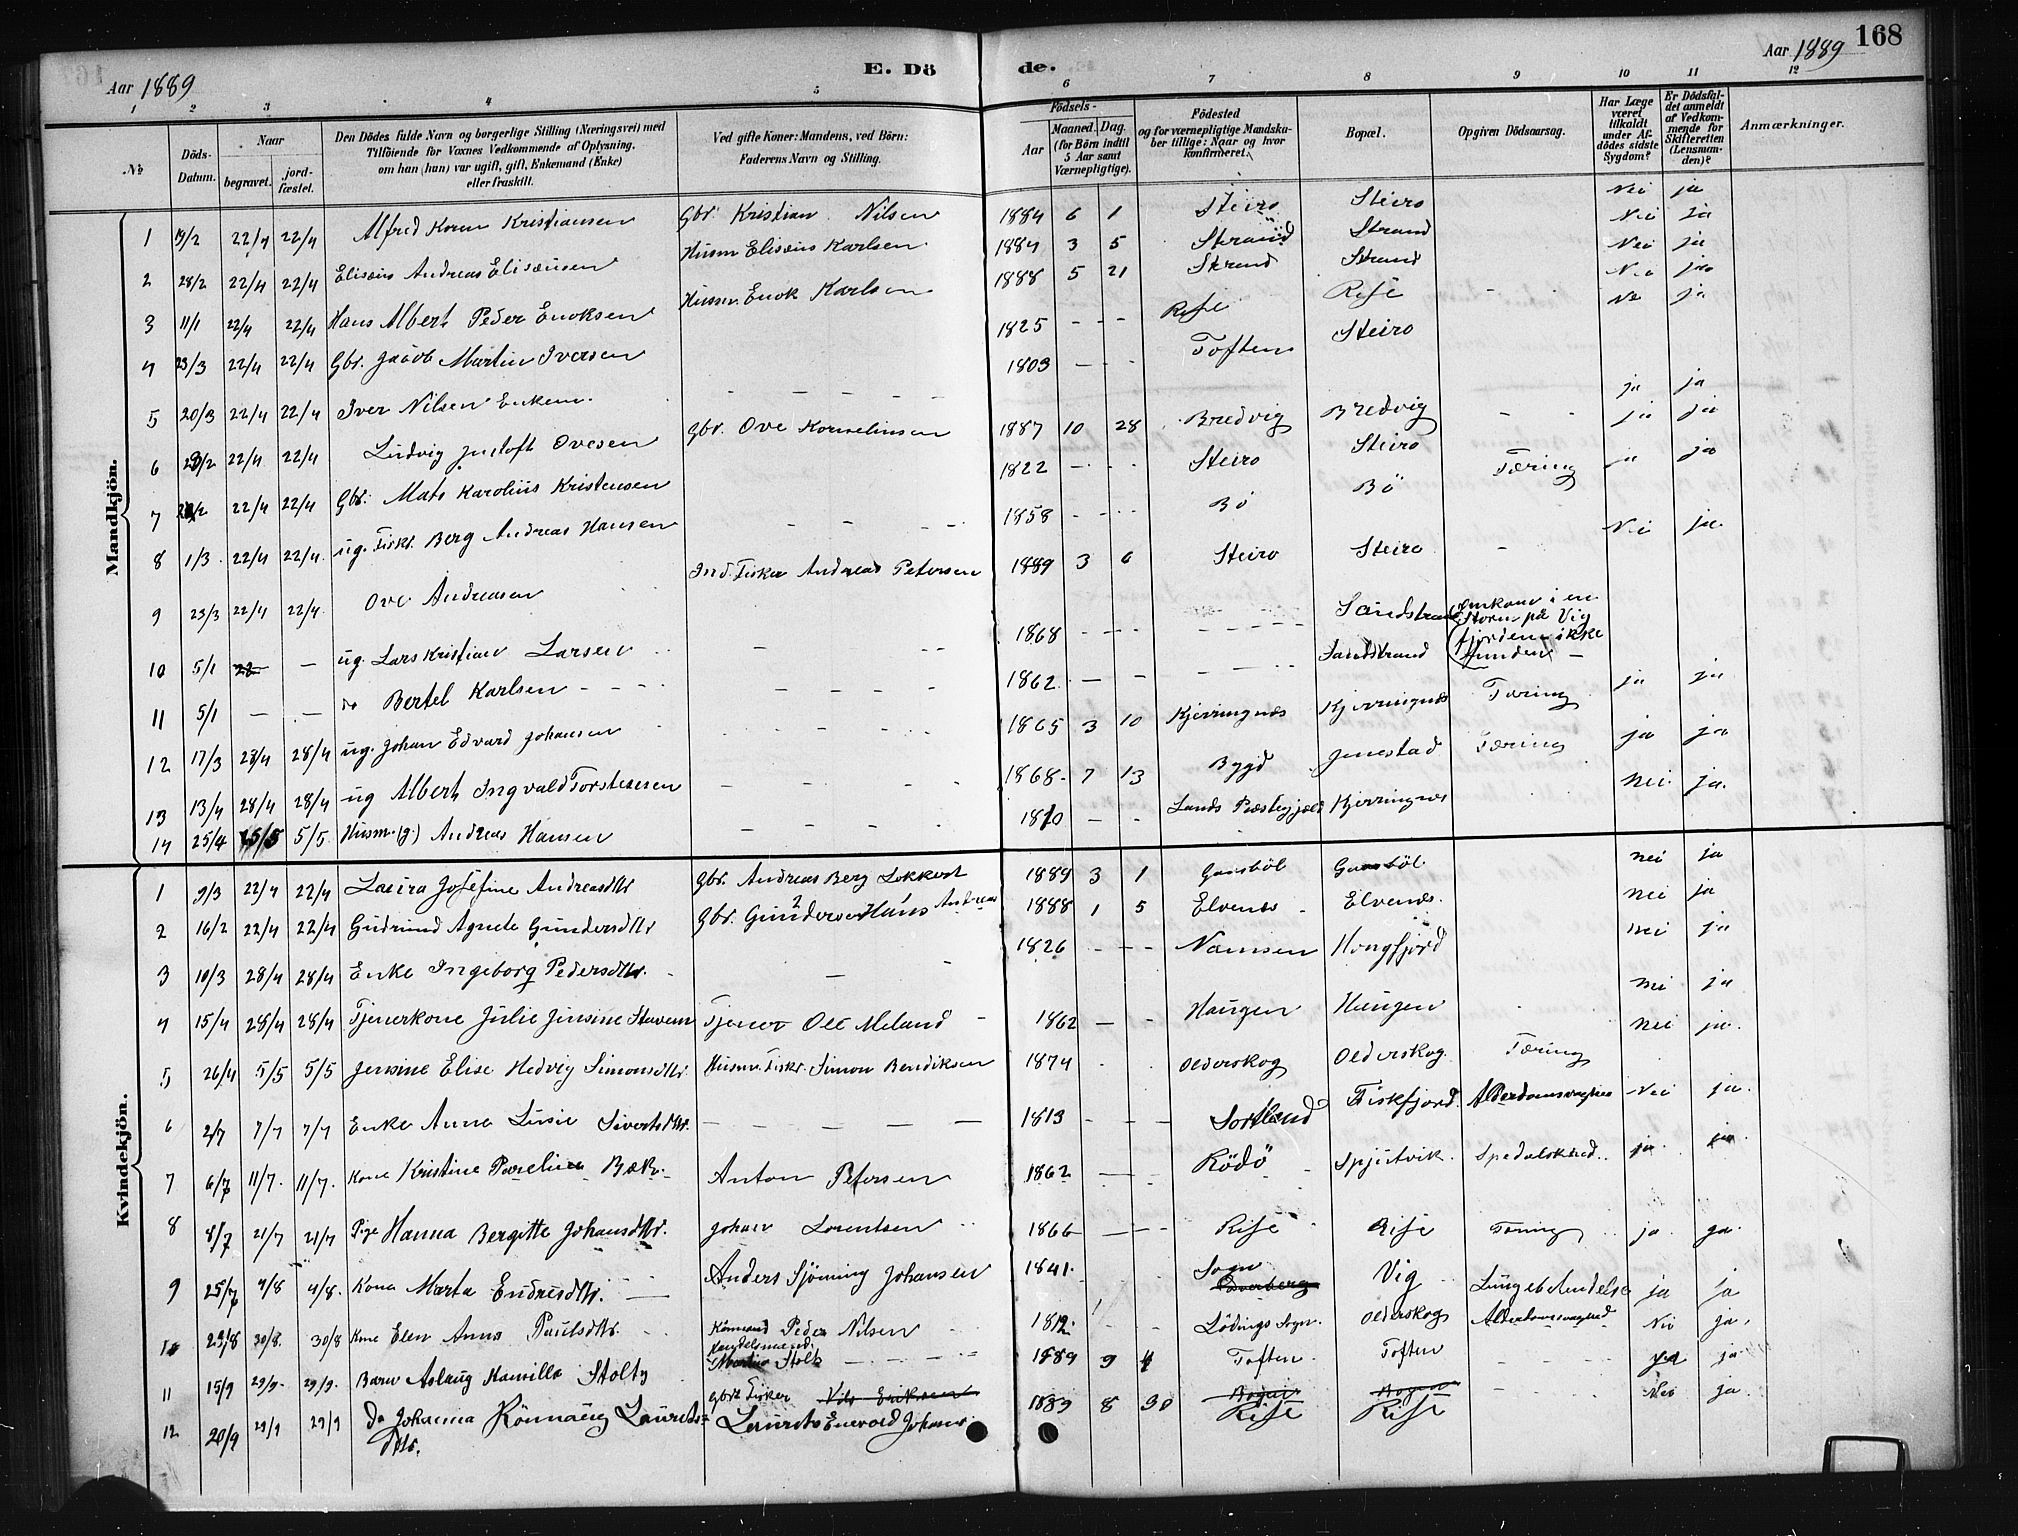 Aar 1889 E. Dö de. Aar 1889 168
1 2 3 4 5 6 7 8 9 10 11 12
No Döds-Datum. Naar begravet. jord-fæstet. Den Dödes fulde Navn og borgerlige Stilling (Næringsvei) med Tilföiende for Voxnes Vedkommende af Oplysning, om han (hun) var ugift, gift, Enkemand (Enke) eller fraskilt. Ved gifte Koner: Mandens, ved Börn: Faderens Navn og Stilling. Födsels- Aar Maaned. Dag. (for Börn indtil 5 Aar samt Værnepligtige). Födested og for værnepligtige Mandskaber tillige: Naar og hvor konfirmeret. Bopæl. Opgiven Dödsaarsag. Har Læge været tilkaldt under Afdödes sidste Sygdom? Er Dödsfaldet anmeldt af Vedkommende for Skifteretten (Lensmanden)? Anmærkninger.
Mandkjön.
1 19/2 22/4 22/4 Alfred Koren Kristiansen Gbr. Kristian Nilsen 1884 6 1 Steiro Steiro Nei ja
2 28/2 22/4 22/4 Elisæus Andreas Elisæusen Husm Elisæus Karlsen 1884 3 5 Strand Strand Nei ja
3 11/1 22/4 22/4 Hans Albert Peder Enoksen Husm. Enok Karlsen 1888 5 21 Strand Strand Nei ja
4 23/3 22/4 22/4 Gbr. Jacob Martin Iversen 1825 - - - Rise Rise Nei ja
5 20/3 22/4 22/4 Iver Nilsen Enkem. 1803 - - - Toften Steiro Ne ja
6 22/4 22/4 Ludvig Justoft Ovesen Gbr. Ove Kornelinsen 1887 10 28 Bredvig Bredvig - ja ja
7 22/4 22/4 Gbr. Mats Karolius Kristensen 1822 - - - Steiro Steiro ja ja
8 1/3 22/4 22/4 ug. Fiskr. Berg Andreas Hansen 1858 - - - Bö Bö Tæring ja ja
9 23/3 22/4 22/4 Ove Andreasen Ind. Fisker Andreas Petersen 1889 3 6 Steiro Steiro - Nei ja
10 5/1 22 - ug. Lars Kristian Larsen 1868 - - - Sandstrand Omkom i en Storm på Vig
11 5/1 - - do Bertel Karlsen 1862 - - Sandstrand fjorden ikke funden -
12 17/3 28/4 ug. Johan Edvard Johansen 1865 3 10 Kjerringnæs Kjerringnæs Tæring ja ja
13 13/4 28/4 28/4 ug Albert Ingvald Torstensen 1868 7 13 Bygd Jennestad Tæring ja ja
14 25/4 5/5 Husm. (g.) Andreas Hansen - - Lands Præstegjæld Kjerringnes nei ja.
Kvindekjön.
1 9/3 22/4 22/4 Laura Josefine Andreasdtr Gbr. Andreas Berg Lokkert 1889 3 1 Gaasböl Gaasböl. nei ja
2 16/2 22/4 22/4 Gudrund Agnete Gundersdtr Gbr. Gunderser Hans Andreas 1888 1 5 Elvenes Elvenes. nei ja
3 10/3 28/4 28/4 Enke Ingeborg Pedersdtr. 1826 - - - Namsen Hongfjord nei ja
4 15/4 28/4 28/4 Tjenerkone Julie Jensine Stavem Tjener Ole Meland 1862 - - Haugen Haugen nei ja
5 26/4 5/5 5/5 Jensine Elise Hedvig Simonsdtr. Husm. Fiskr. Simon Bendiksen 1874 Olderskog Olderskog. Tæring nei ja.
6 2/7 7/7 7/7 Enke Anna Lusie Sivertsdtr. 1813 - - - Sortland Fiskfjord. Alderdomssvaghed Nei ja.
7 6/7 11/7. 11/7. Kone Kristine Parelina Bæk. Anton Petersen 1862 Rödö Spjutvik. Spedalskhed. ja. ja.
8 8/7 21/7 21/7 Pige Hanna Bergitte Johansdtr. Johan Lorentsen 1866 Rise Rise Tæring ja. ja.
9 25/7 4/8 4/8. Kona Marta Endresdtr. Anders Sjönning Johansen 1841. Sogn Vig Lungebetændelse ja ja
10 23/8 30/8. 30/8 Kone Elen Anna Paulsdtr. Kårmand Peder Nilsen 1812. Lödings Sogn. Olderskog Alderdomssvaghed Nei ja.
11 15/9 29/9. 29/9. Barn Aslaug Kamilla Stoltz Handelsmand Martin Stolt 1889 9 4 Toften. Toften ja ja
12 20/9 29/9 29/9 Do Johanna Rönnaug Lauritsdtr. Gbr. Fisker Nils Eriksen Laurits Enevold Johans. 1889 8 30 Bogen Rise Bogen Rise Nei ja.